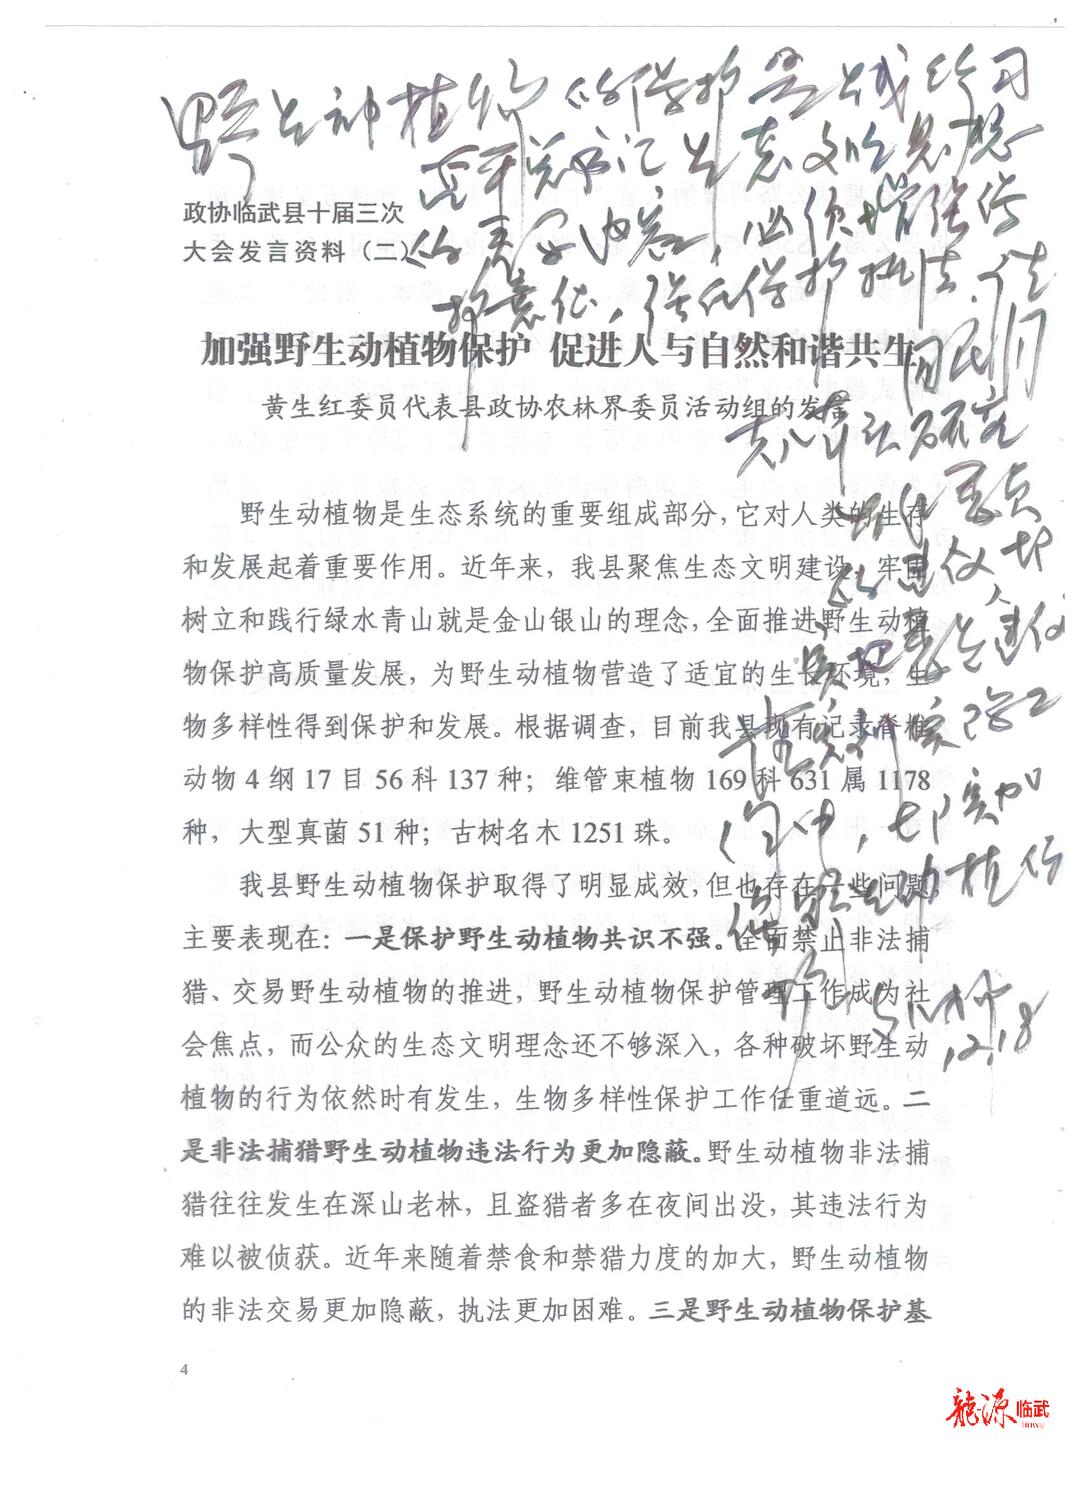 野生动植物的保护是 习
近平总书记生态文明思想
的重要内容，必须增强保
护意识，强化保护执法。请
牵头研究
委员
的建议
工
作中，切实加
强野生动植物保
护
12.18
政协临武县十届三次
大会发言资料（二）
加强野生动植物保护 促进人与自然和谐共生
黄生红委员代表县政协农林界委员活动组的发言
野生动植物是生态系统的重要组成部分，它对人类的生存
和发展起着重要作用。近年来，我县聚焦生态文明建设，牢固
树立和践行绿水青山就是金山银山的理念，全面推进野生动植
物保护高质量发展，为野生动植物营造了适宜的生长环境，生
物多样性得到保护和发展。根据调查，目前我县现有记录脊椎
动物 4 纲 17 目 56 科 137 种；维管束植物 169 科 631 属 1178
种，大型真菌 51 种；古树名木 1251 珠。
我县野生动植物保护取得了明显成效，但也存在一些问题，
主要表现在：一是保护野生动植物共识不强。全面禁止非法捕
猎、交易野生动植物的推进，野生动植物保护管理工作成为社
会焦点，而公众的生态文明理念还不够深入，各种破坏野生动
植物的行为依然时有发生，生物多样性保护工作任重道远。二
是非法捕猎野生动植物违法行为更加隐蔽。野生动植物非法捕
猎往往发生在深山老林，且盗猎者多在夜间出没，其违法行为
难以被侦获。近年来随着禁食和禁猎力度的加大，野生动植物
的非法交易更加隐蔽，执法更加困难。三是野生动植物保护基
4
龙源临武
linwu